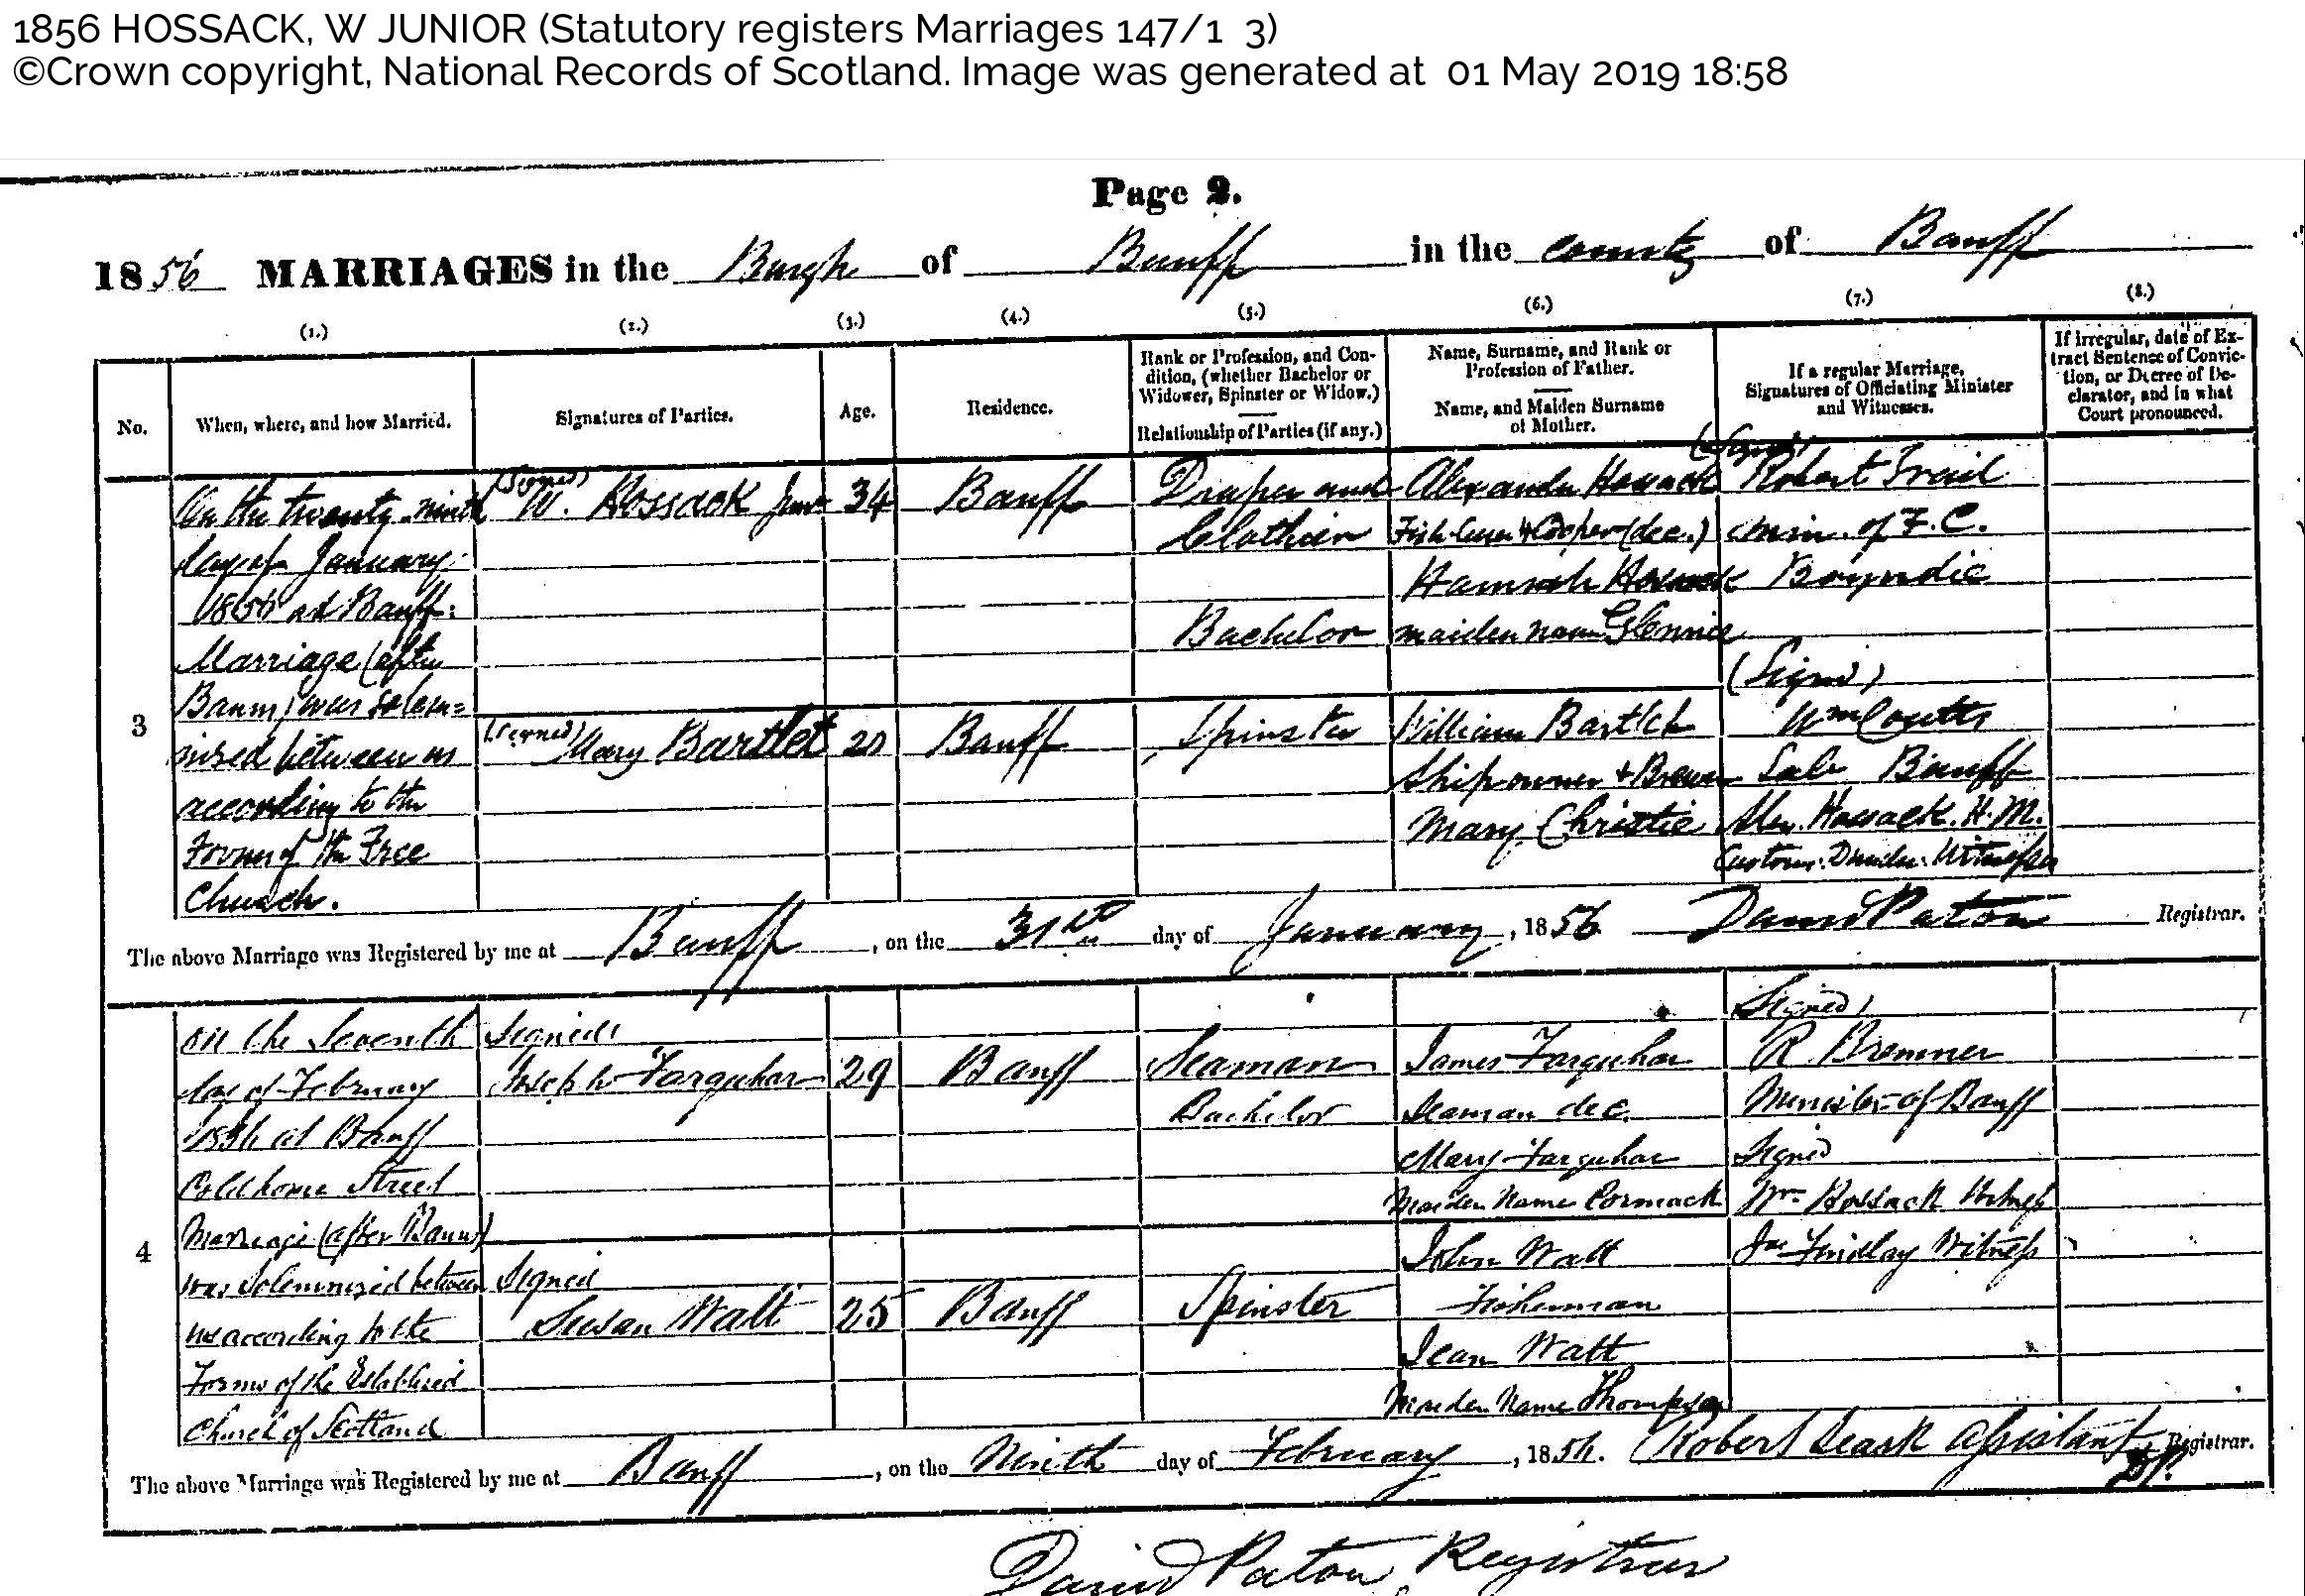 1856 HOSSACK, W JUNIOR (Statutory registers Marriages 147/1 3)
©Crown copyright, National Records of Scotland. Image was generated at 01 May 2019 18:58
Page 2.
1856 MARRIAGES in the Burgh of Banff in the County of Banff
(1.) (2.) (3.) (4.) (5.) (6.) (7.) (8.)
No.
When, where, and how Married.
Signatures of Parties.
Age.
Residence.
Rank or Profession, and Con-
dition, (whether Bachelor or
Widower, Spinster or Widow.)
Relationship of Parties (if any.)
Name, Surname, and Rank or
Profession of Father.
Name, and Maiden Surname
of Mother.
If a regular Marriage,
Signatures of Officiating Minister
and Witnesses.
If irregular, date of Ex-
tract Sentence of Convic-
tion, or Decree of De-
clarator, and in what
Court pronounced.
3
On the twenty-ninth
day of January
1856 at Banff:
Marriage (after
Banns) was solem=
nised between us
according to the
Forms of the Free
Church.
(Signed)
W. Hossack Junr
34
Banff
Draper and
Clothier
Bachelor
Alexander Hossack
Fish Curer & Cooper (dec.)
Hannah Hossack
maiden name Glennie
(Signed)
Robert Freid
min. of F.C.
Boyndie
(Signed)
Mary Bartlet
Banff
Spinster
William Bartlet
Shipowner & Brewer
Mary Christie
(Signed)
Wm Coutts
Banff
Alex. Hossack. H.M.
Customs. Dundee. Witnesses
The above Marriage was Registered by me at Banff, on the 31st day of January, 1856 David Paton Registrar.
4
On the Seventh
day of February
1856 at Banff
Coldhome Street
Marriage (after Banns)
was Solemnized between
us according to the
Forms of the Established
Church of Scotland
Signed
Joseph Farquhar
29
Banff
Seaman
Bachelor
James Farquhar
Seaman dec.
Mary Farquhar
Maiden Name Cormack
Signed
R Bremner
Minister of Banff
Signed
Wm Hossack Witness
Jas Findlay Witness
Signed
Susan Watt
25
Banff
Spinster
John Watt
Fisherman
Jean Watt
Maiden Name Thompson
The above Marriage was Registered by me at Banff, on the Ninth day of February, 1856. Robert Seask Assistant Registrar.
D.P.
David Paton Registrar